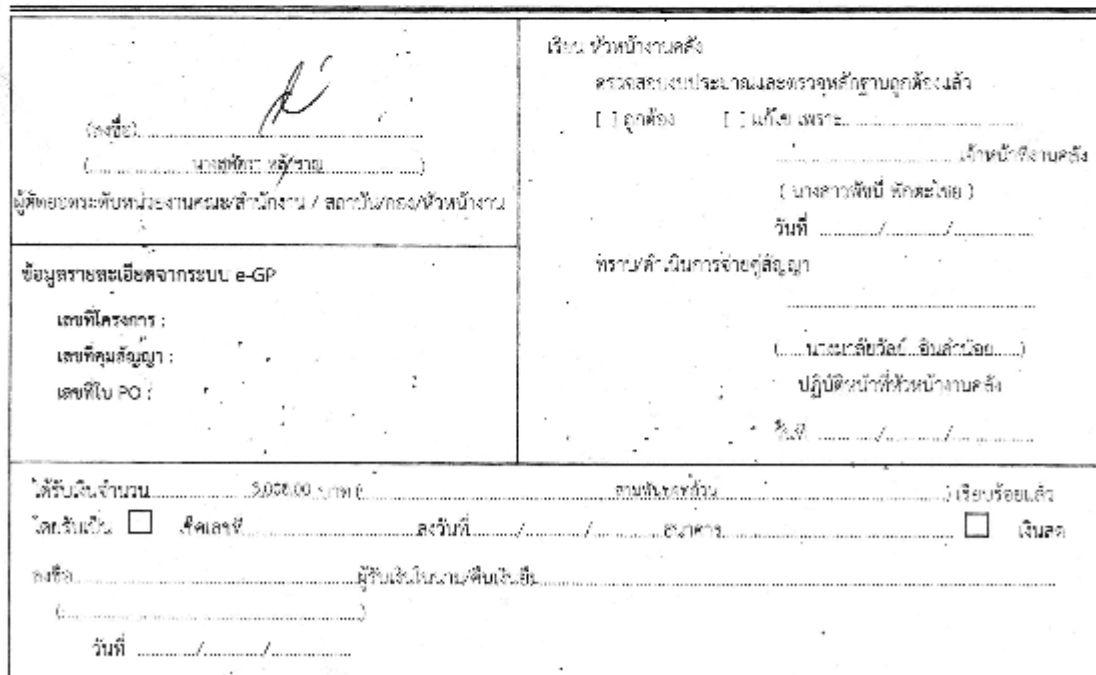 (ลงชื่อ)
(นางสุพัตรา)
ผู้ตัดยอดระดับหน่วยงานคณะ/สำนักงาน / สถาบัน/กอง/หัวหน้างาน
ข้อมูลรายละเอียดจากระบบ e-GP
เลขที่โครงการ :
เลขที่คุมสัญญา :
เลขที่ใบ PO :
เรียน หัวหน้างานคลัง
ตรวจสอบงบประมาณและตรวจหลักฐานถูกต้องแล้ว
[ ] ถูกต้อง [ ] แก้ไข เพราะ
เจ้าหน้าที่งานคลัง
( นางสาวพัชนี )
วันที่ ......./......./.......
ทราบ/ดำเนินการจ่ายคู่สัญญา
(นางมาลัยวัลย์ อินลำน้อย)
ปฏิบัติหน้าที่หัวหน้างานคลัง
วันที่ ......./......./.......
ได้รับเงินจำนวน บาท ( สามพันบาทถ้วน ) เรียบร้อยแล้ว
โดยรับเป็น ☐ เช็คเลขที่ ลงวันที่ ......./......./....... ธนาคาร ☐ เงินสด
ลงชื่อ ผู้รับเงินในนาม/คืนเงินยืม
( )
วันที่ ......./......./.......